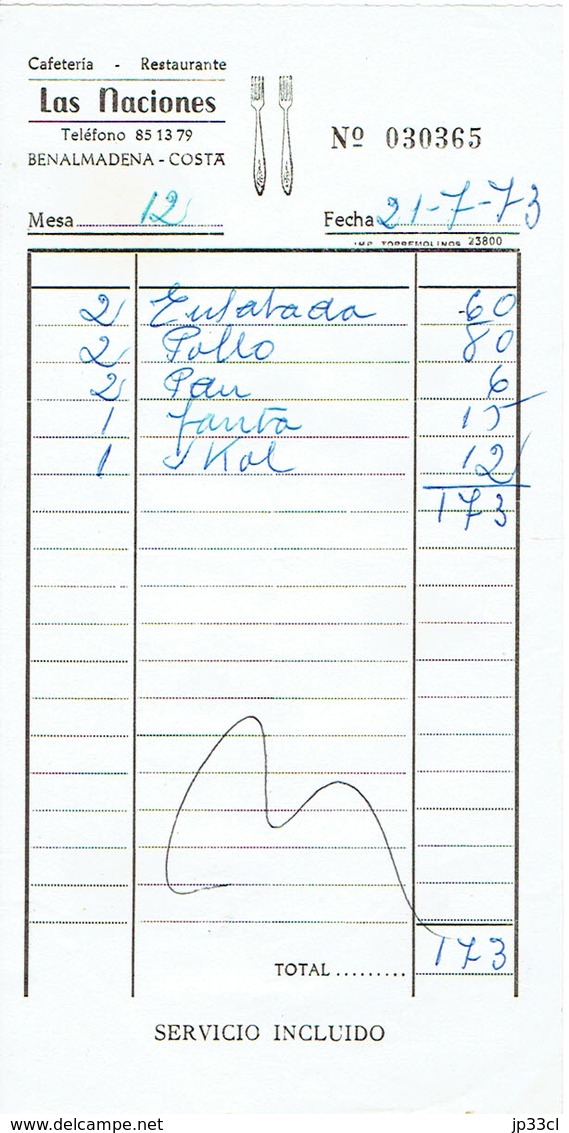 Cafetería - Restaurante
Las Naciones
Teléfono 85 13 79
BENALMADENA - COSTA
Nº 030365
Mesa 12
Fecha 21-7-73
IMP. TORREMOLINOS 23800
2 Ensalada 60
2 Pollo 80
2 Pan 6
1 fanta 15
1 Skol 12
173
TOTAL ......... 173
SERVICIO INCLUIDO
jp33cl